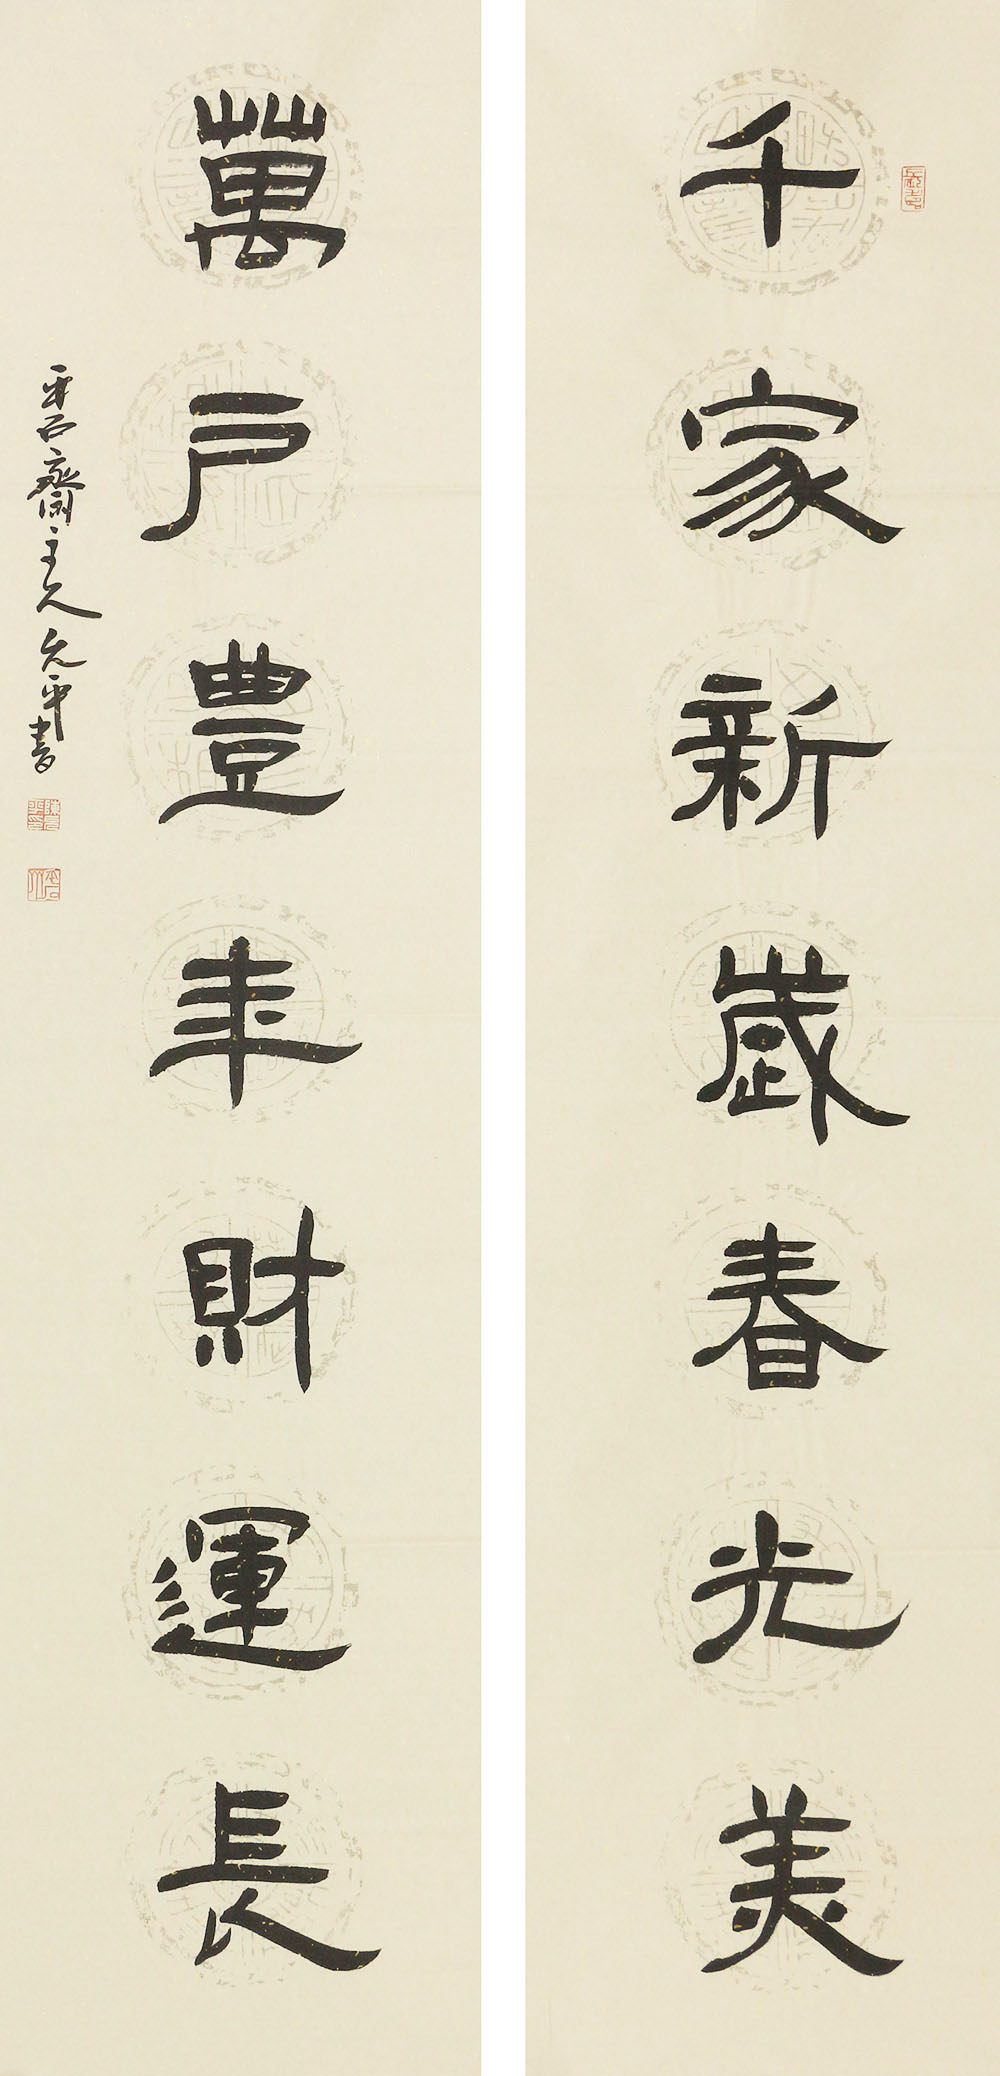 千家新歲春光美
萬戶豊年財運長
齋主人允平書